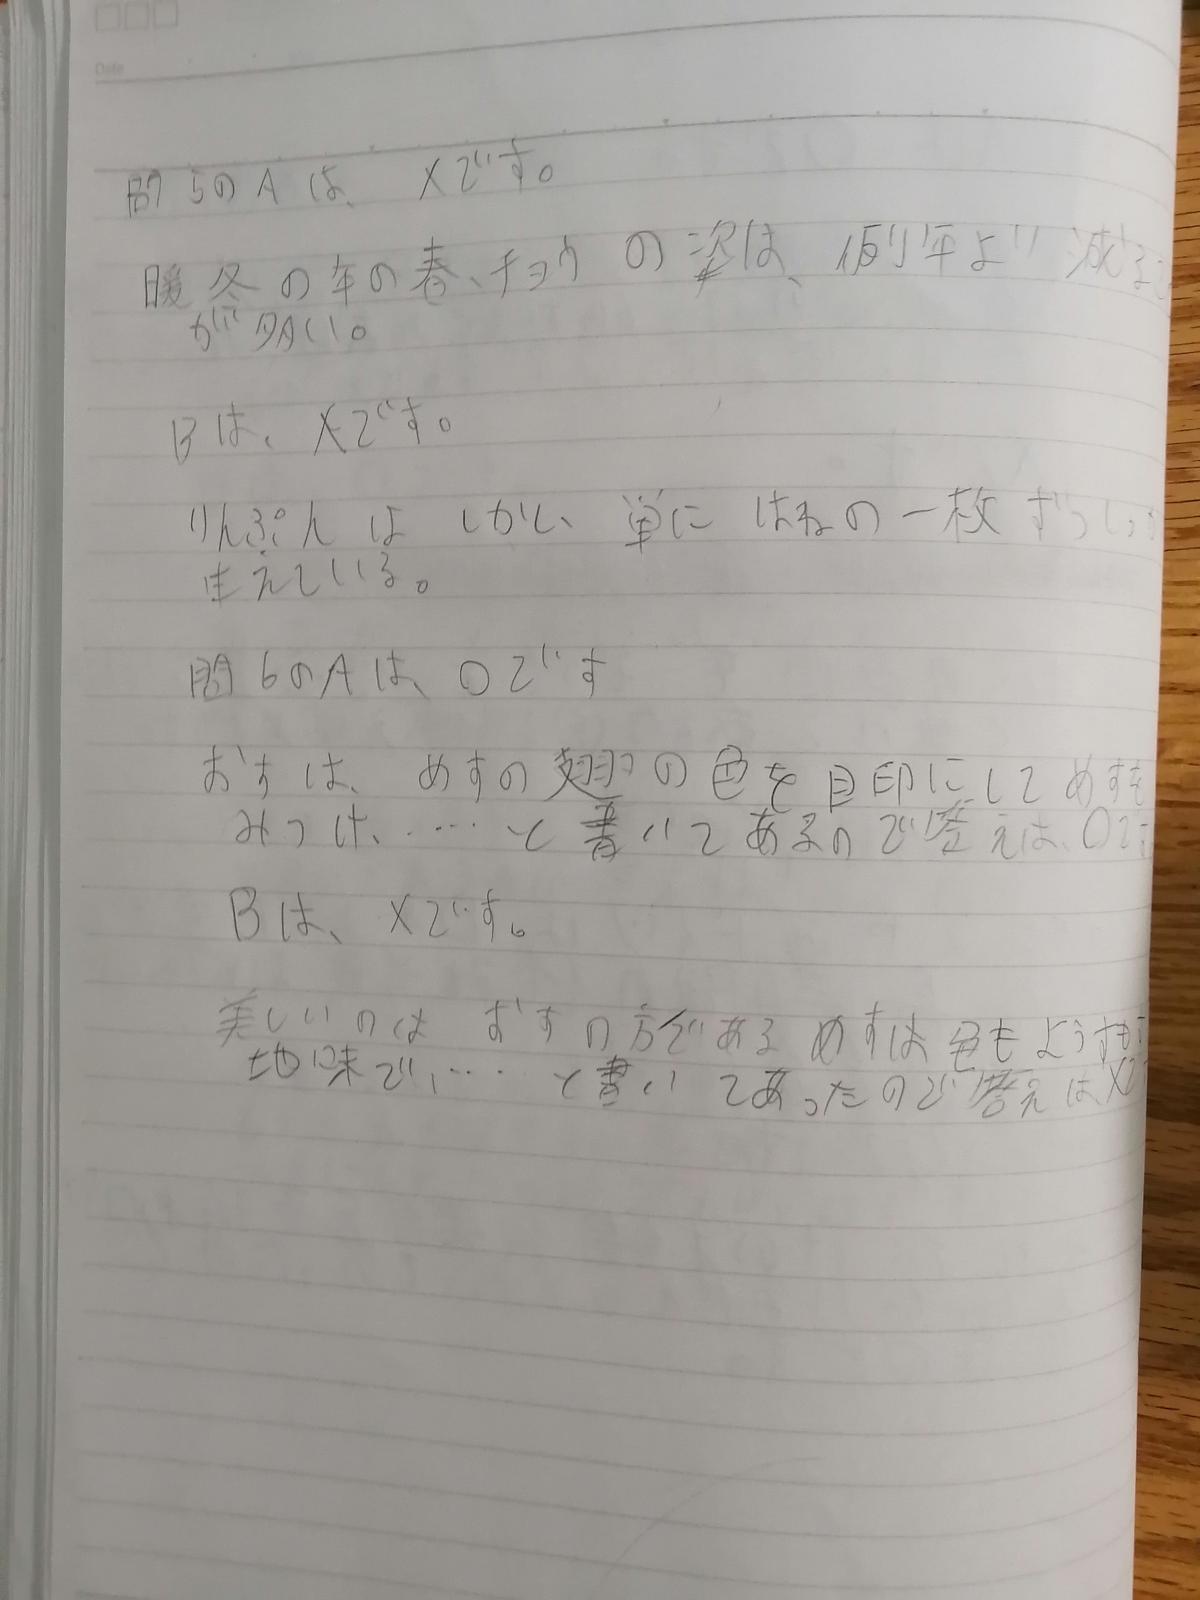 Date
問5のAは、×です。
暖冬の年の春、チョウの姿は、例年より減る
が多い。
Bは、×です。
りんぷんはしかし、単にはねの一枚ずつしっか
生えている。
問6のAは、○です
おすは、めすの翅の色を目印にしてめすを
みつけ、……と書いてあるので答えは、○で
Bは、×です。
美しいのはおすの方である めすは色もようすも
地味で、…… と書いてあったので答えは×で